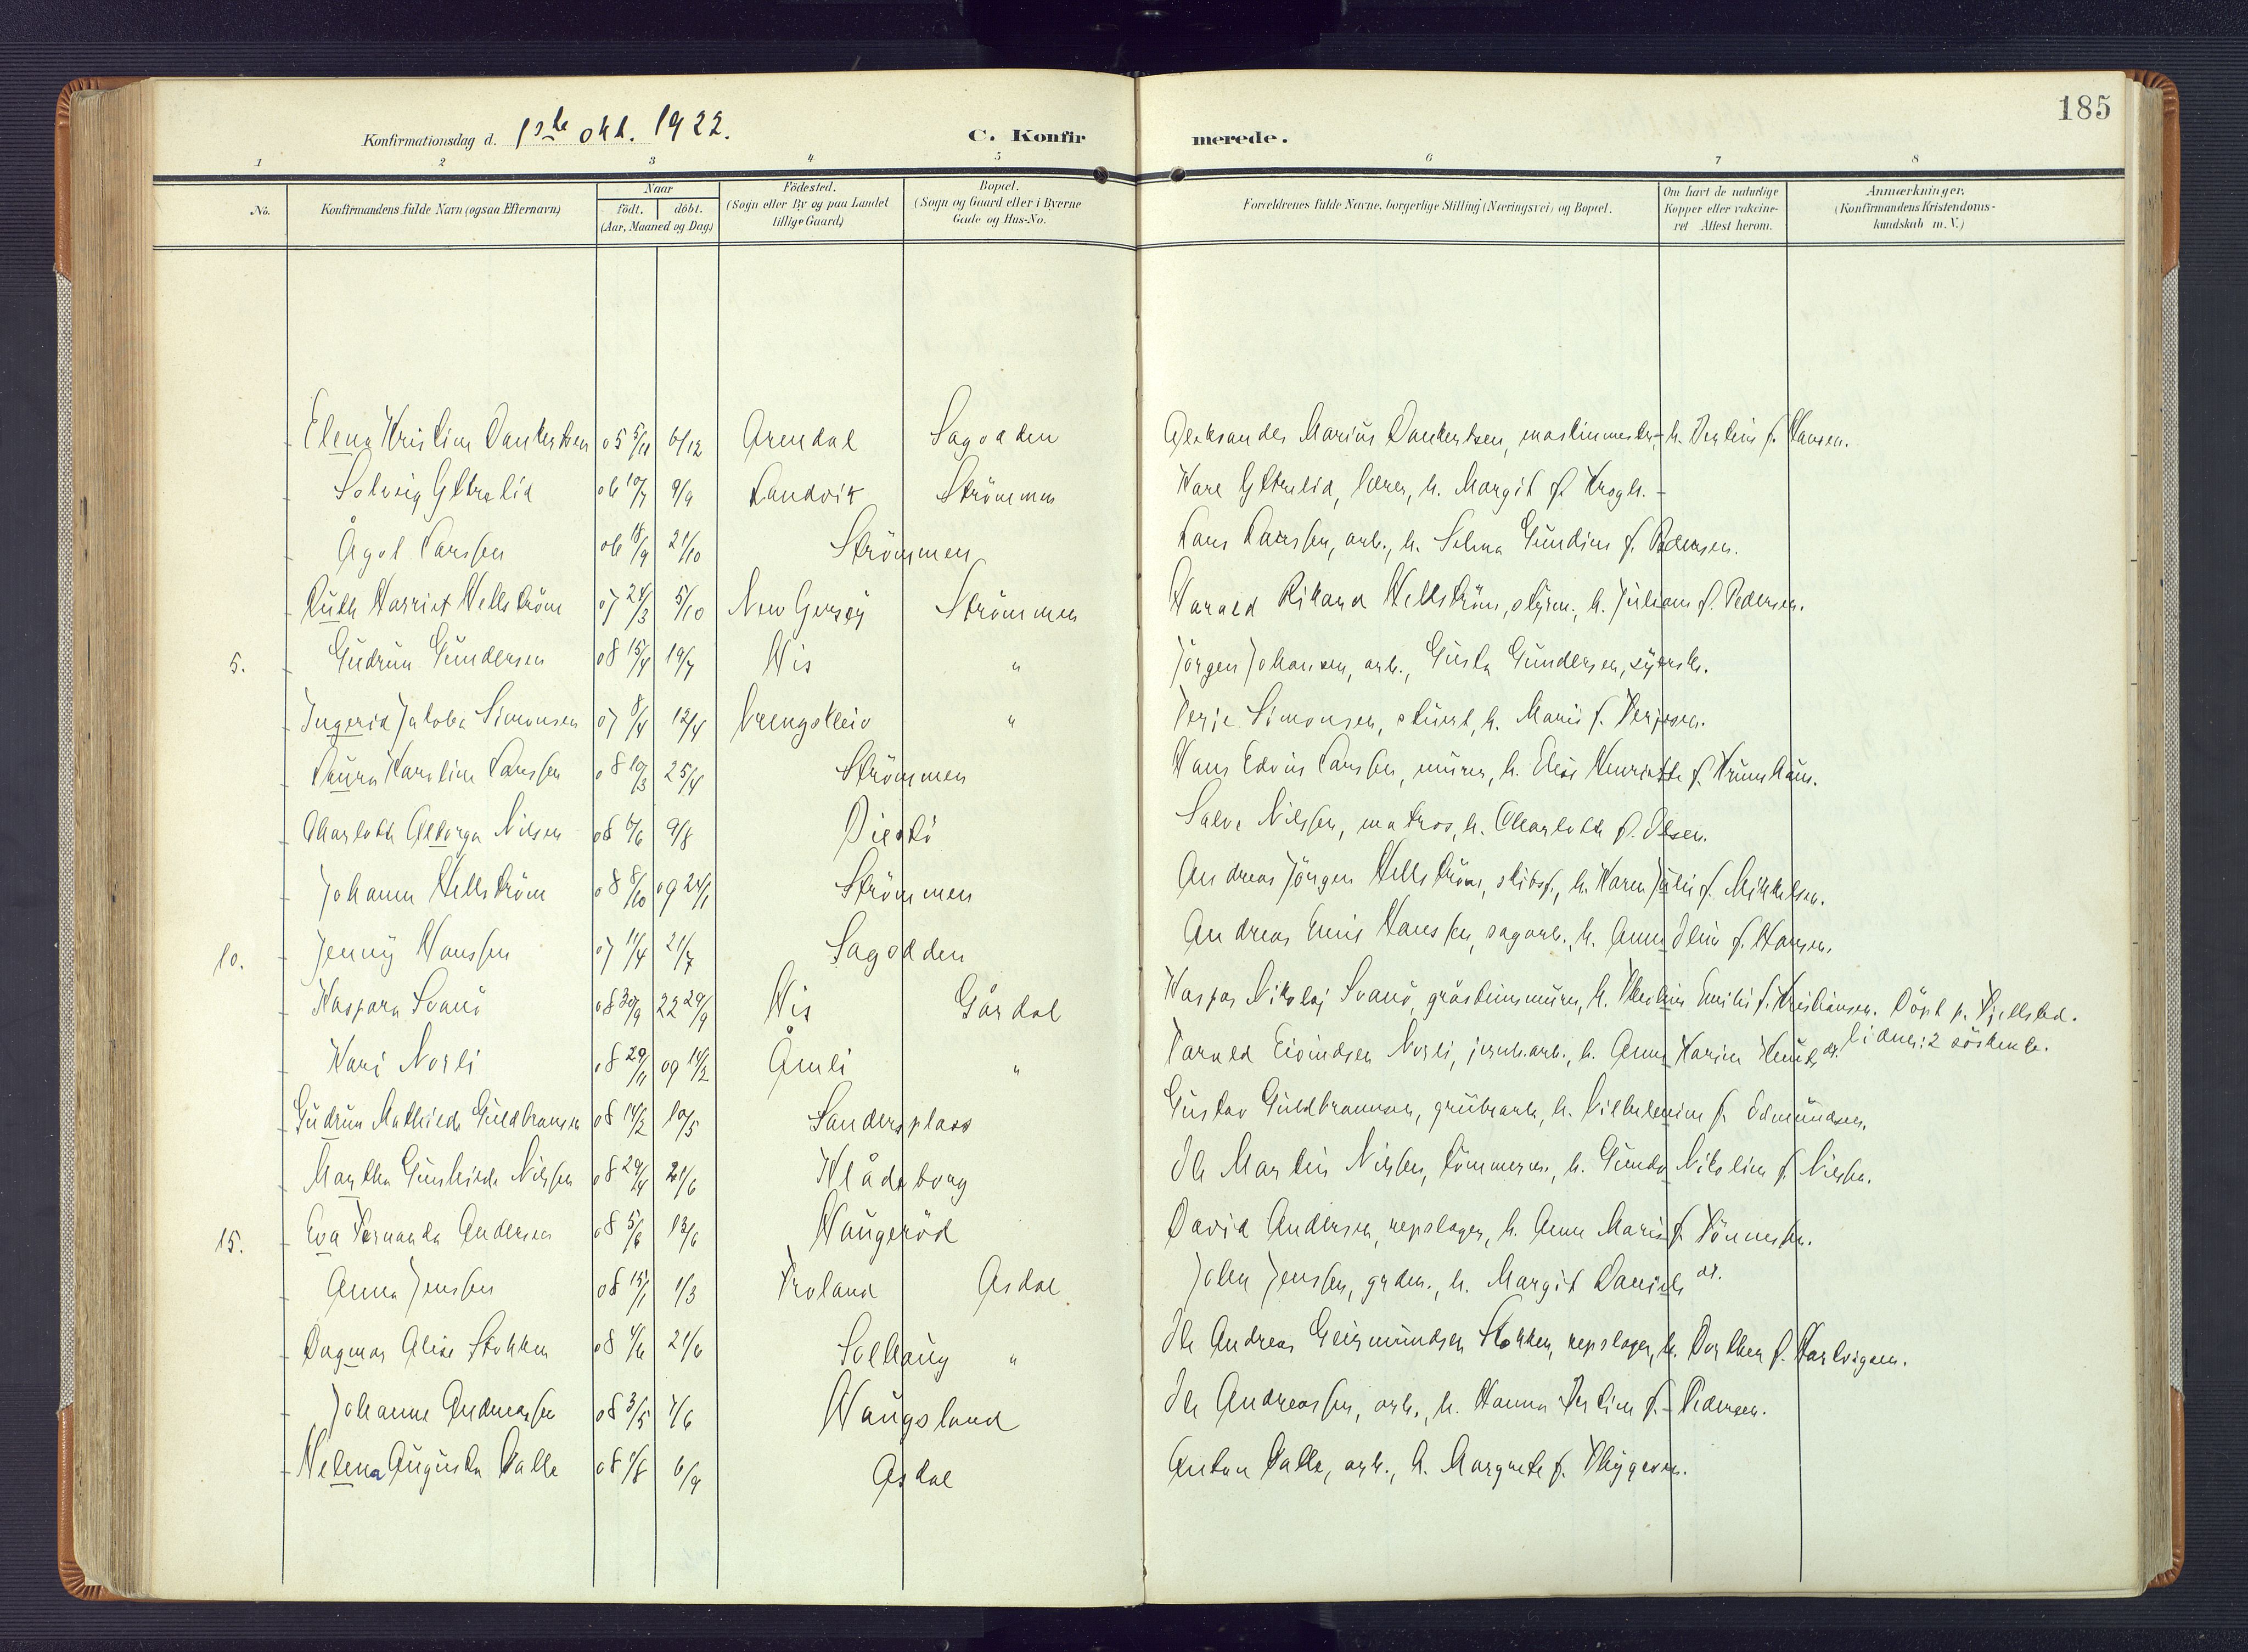 185
Konfirmationsdag d. 1ste okt. 1922. C. Konfirmerede.
1 2 3 4 5 6 7 8
No. Konfirmandens fulde Navn (ogsaa Efternavn) Naar födt. döbt. (Aar, Maaned og Dag) Födested. (Sogn eller By og paa Landet tillige Gaard) Bopæl. (Sogn og Gaard eller i Byerne Gade og Hus-No. Forældrenes fulde Navne, borgerlige Stilling (Næringsvei) og Bopæl. Om havt de naturlige Kopper eller vakcineret Attest herom. Anmærkninger. (Konfirmandens Kristendomskundskab m. V.)
Elena Kristine Dankertsen 05 5/11 6/12 Arendal Sagodden Aleksander Marius Dankertsen, maskinmester, h. f. Hansen.
Solveig 06 10/7 9/9 Landvik Strömmen Kare lærer, h. Margit f. Krogh.
Ågot Larssen 06 18/9 21/10 Strömmen Lars Larssen, arb., h. Selma Gundine f. Pedersen.
Ruth Harriet Hellström 07 24/3 5/10 New Gersey Strömmen Harald Rikard Hellström, styrm., h. Juliane f. Pedersen.
5. Gudrun Gundersen 08 15/4 19/7 His " Jörgen Johansen, arb., Gusta Gundersen, syersk.
Ingerid Jakobe Simonsen 07 8/4 12/4 " Terje Simonsen, h. Marie f. Terjesen.
Laura Karoline Larssen 08 10/3 25/4 Strömmen Hans Edvin Larssen, murer, h. Elise Henriette f.
Charlotte Alvorga Nilsen 08 6/6 9/8 Diesö Salve Nilssen, matros, h. Charlotte f. Olsen.
Johanne Hellström 08 8/10 09 24/1 Strömmen Andreas Jörgen Hellström, skibsf., h. Karen Julie f. Mikkelsen.
10. Jenny Hanssen 07 11/4 21/7 Sagodden Andreas Emil Hanssen, sagarb., h. Anne Oline f. Hansen.
Kaspara Svanö 08 30/9 22 29/9 His Gårdal Kaspar Nikolaj Svanö, gråstensmurer, h. Emilie f. Kristiansen. Döpt p.
Kari Norli 08 29/11 09 14/2 Åmli " Tarald Eivindsen Norli, jernb.arb., h. Anne Karine Knutsdr. 2 söskenb.
Gudrun Mathilde Guldbransen 08 14/2 10/5 Sandersplass Gustav Guldbransen, grubearb., h. Vilhelmine f. Edmundsen.
Martha Gunhilde Nilssen 08 29/4 21/6 Klådeborg Ole Martin Nilssen, tömmerm., h. Gunda Nikoline f. Nilssen.
15. Eva Fernanda Andersen 08 5/6 13/6 Haugeröd David Andersen, repslager, h. Anne Marie f. Tönnessen.
Anna Jenssen 08 15/1 1/3 Froland Asdal John Jenssen, grdm., h. Margit Danielsdr.
Dagmar Alise Stokken 08 4/6 21/6 Solhaug " Ole Andreas Geirmundsen Stokken, repslager, h. Dorthea f. Hartvigsen.
Johanne Andreassen 08 3/5 7/6 Haugsland Ole Andreassen, arb., h. Hanna f. Pedersen.
Helena Augusta Dalle 08 1/8 6/9 Asdal Anton Dalle, arb., h. Margrete f.